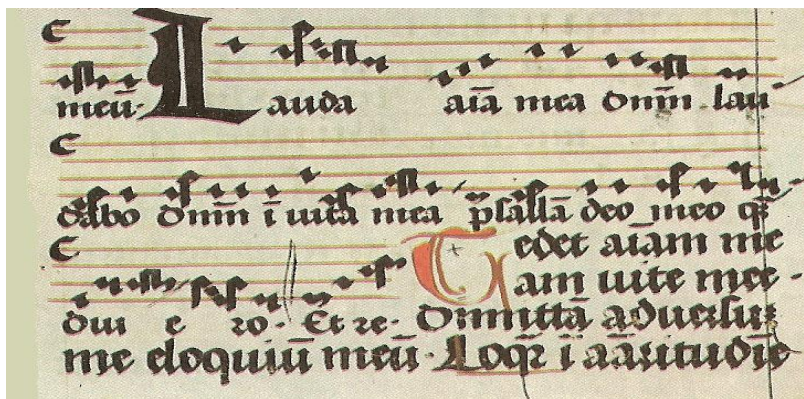 meū. Lauda aīa mea dnm̄. lau
dabo dnm̄ ī uita mea psallā deo meo qḿ
diu e ro. Et re. Tedet aīam me
am uite mee.
dimittā aduersus
me eloquiū meū. Loqr̄ ī amaritudīe